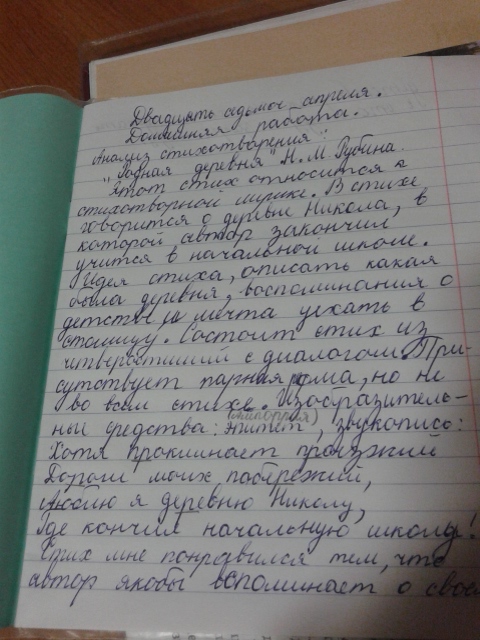 Двадцать седьмое апреля.
Домашняя работа.
Анализ стихотворения
"Родная деревня" Н. М. Рубина.
Этот стих относится к
стихотворной лирике. В стихе
говорится о деревне Никола, в
которой автор закончил
учится в начальной школе.
Идея стиха, описать какая
была деревня, воспоминания о
детстве и мечта уехать в
столицу. Состоит стих из
четверостиший с диалогом. При-
сутствует парная рифма, но не
во всём стихе. Изобразитель-
ные средства: эпитет, звукопись:
Хотя проклинает проезжий
Дороги моих побережий,
Люблю я деревню Николу,
Где кончил начальную школу!
Стих мне понравился тем, что
автор якобы вспоминает о своём